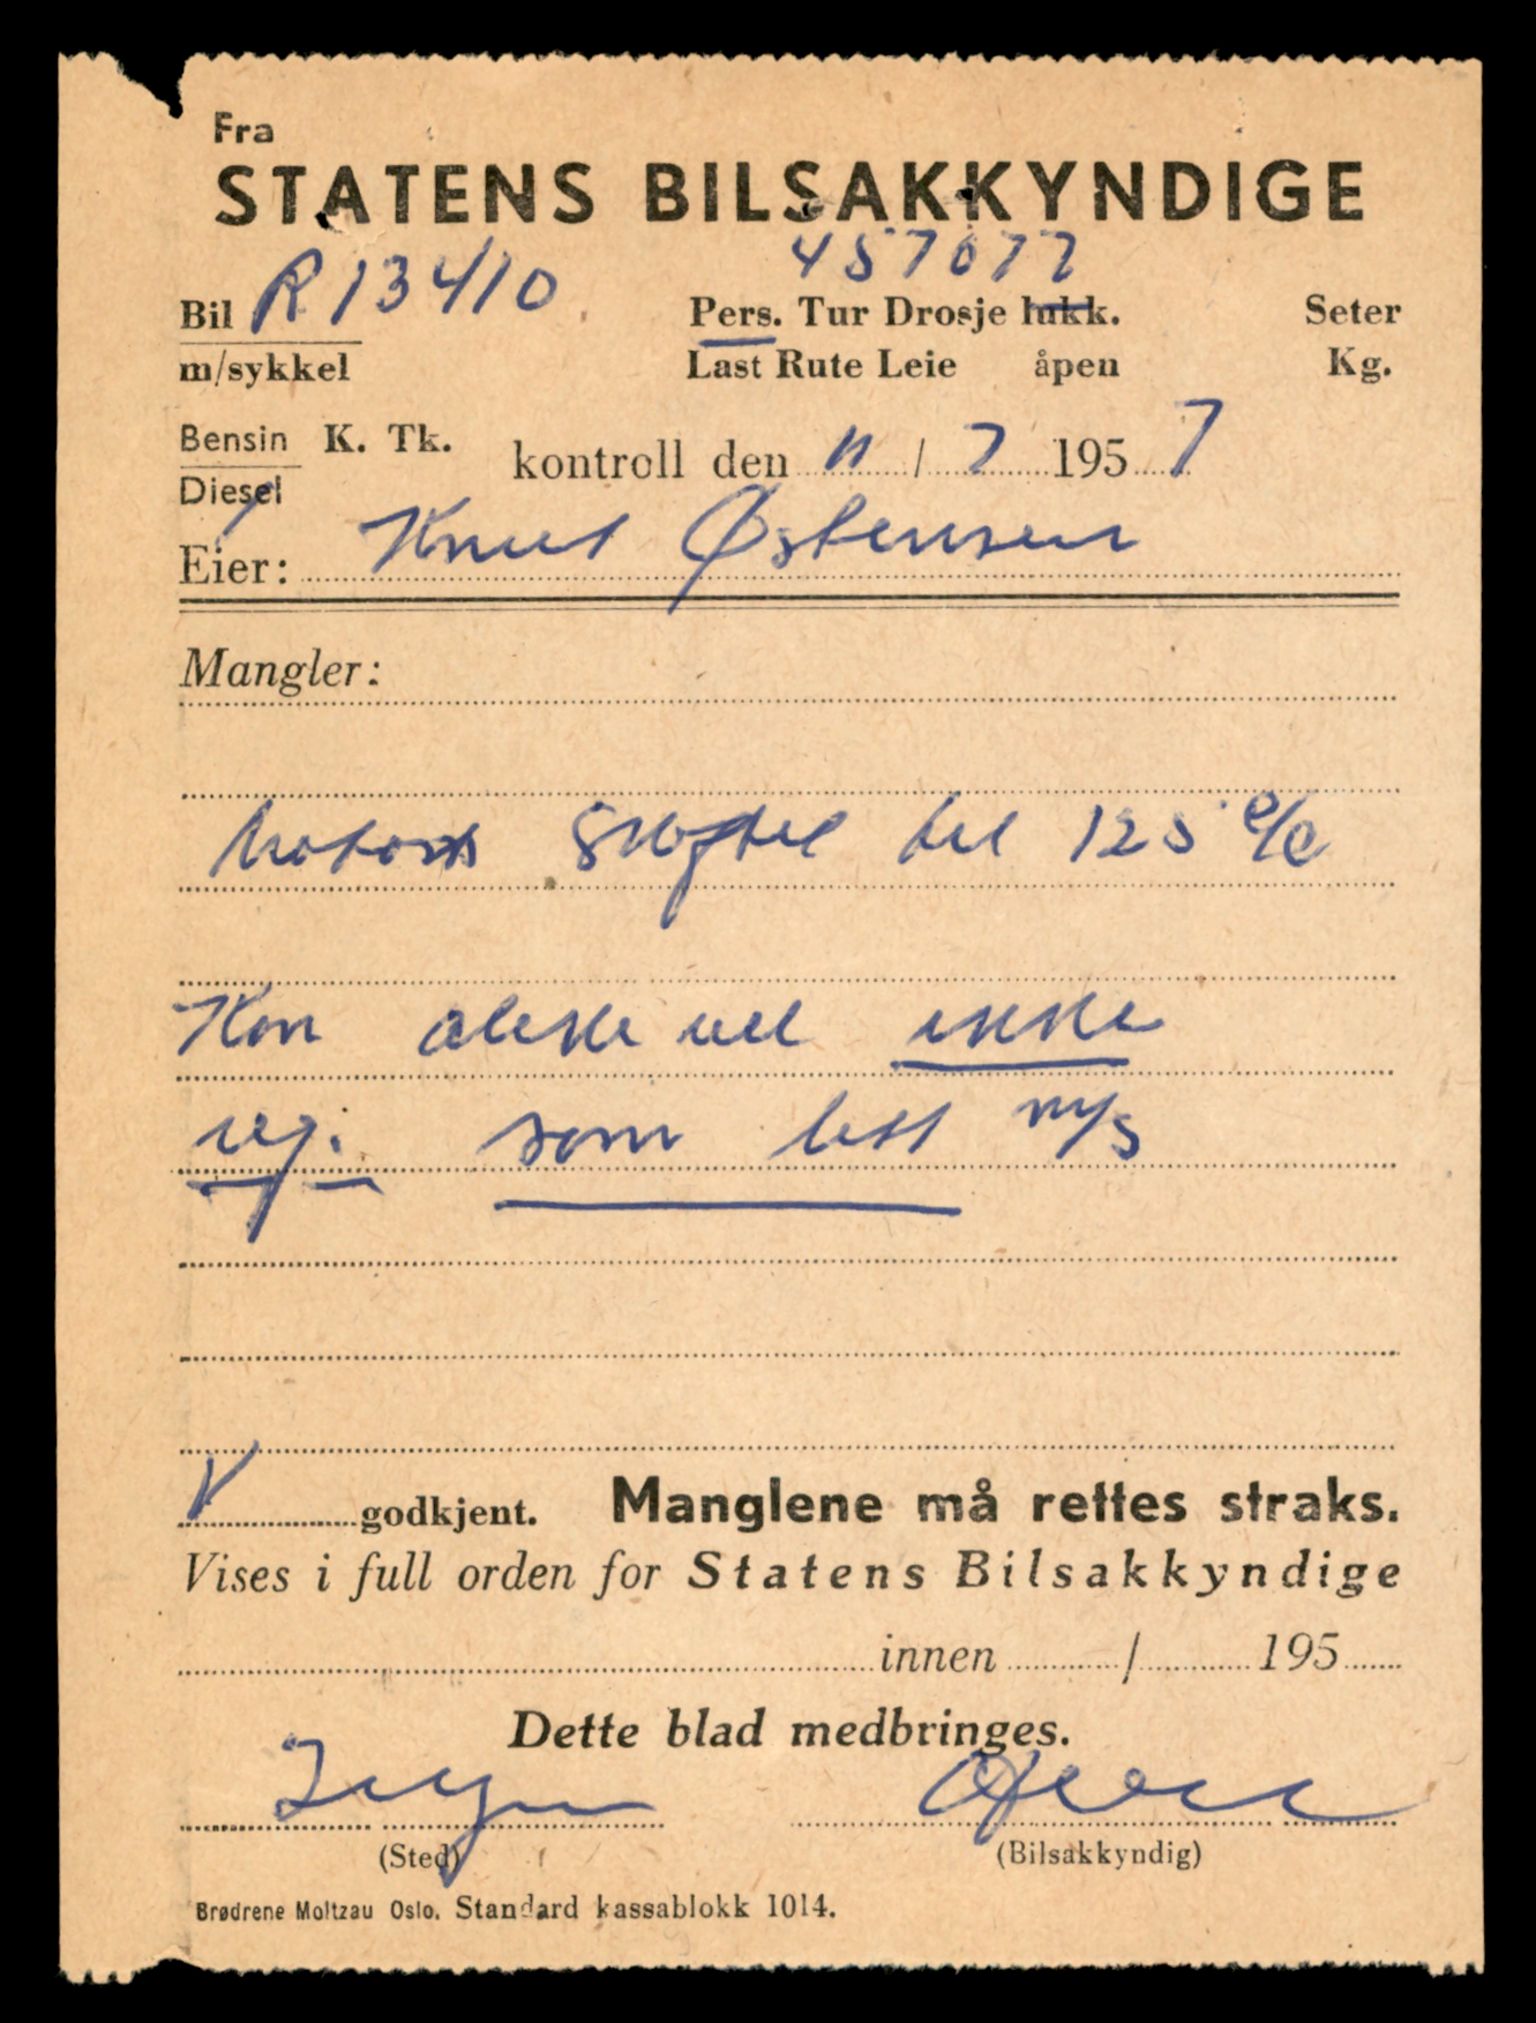 Fra
STATENS BILSAKKYNDIGE
Bil R 13410 457077
Pers. Tur Drosje lukk. Seter
m/sykkel Last Rute Leie åpen Kg.
Bensin K. Tk.
Diesel
kontroll den 11 / 7 1957
Eier: Knut Østensen
Mangler:
til 125 c/c
Kan ikke
som lett m/s
V godkjent. Manglene må rettes straks.
Vises i full orden for Statens Bilsakkyndige
innen / 195
Dette blad medbringes.
(Sted) (Bilsakkyndig)
Brødrene Moltzau Oslo. Standard kassablokk 1014.